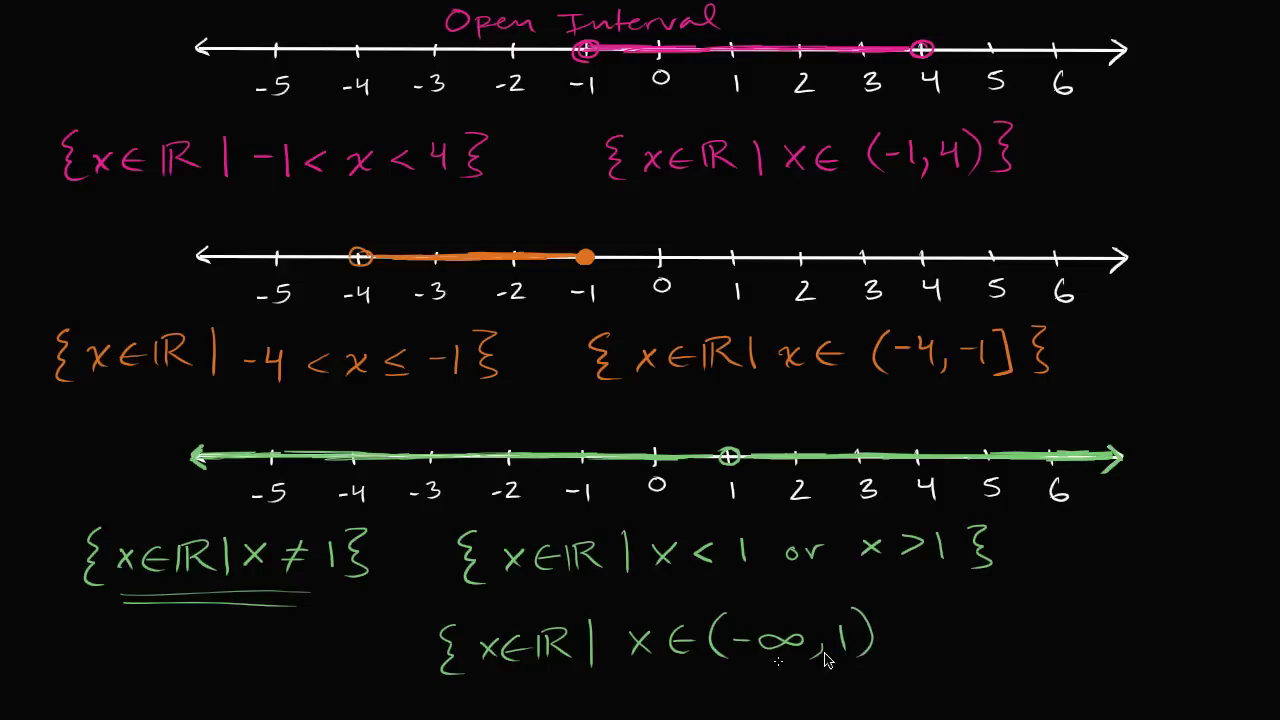 Open Interval
-5 -4 -3 -2 -1 0 1 2 3 4 5 6
{x∈ℝ | -1 < x < 4} {x∈ℝ | x∈ (-1,4)}
-5 -4 -3 -2 -1 0 1 2 3 4 5 6
{x∈ℝ | -4 < x ≤ -1} {x∈ℝ | x∈ (-4,-1]}
-5 -4 -3 -2 -1 0 1 2 3 4 5 6
{x∈ℝ | x ≠ 1} {x∈ℝ | x < 1 or x > 1}
{x∈ℝ | x∈(-∞,1)